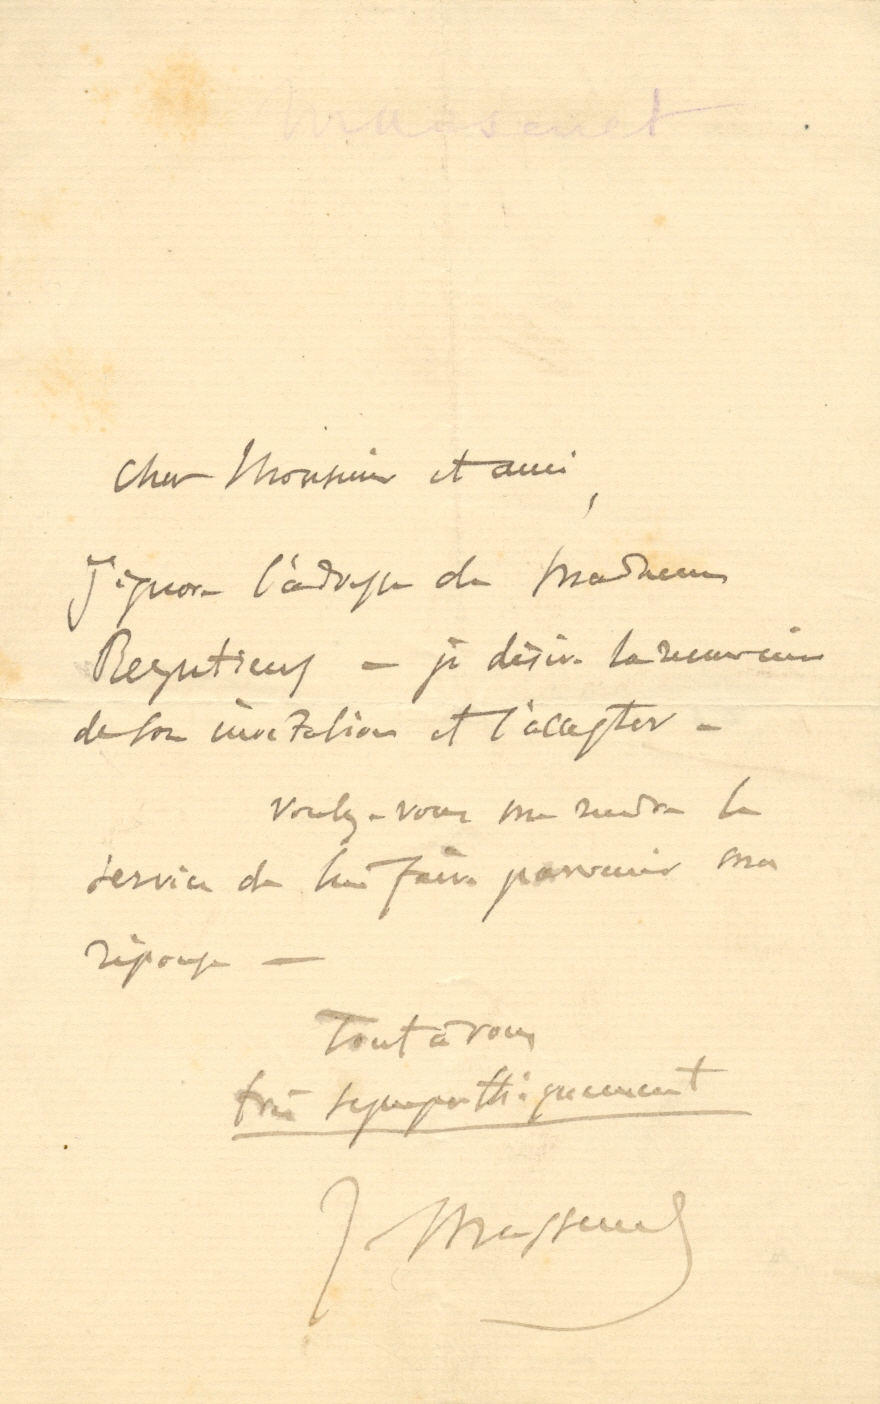 Massenet
Cher Monsieur et ami,
J'ignore l'adresse de Madame
– je désire la remercier
de son invitation et l'accepter –
voulez-vous me rendre le
service de lui faire parvenir ma
réponse –
Tout à vous
très sympathiquement
J. Massenet